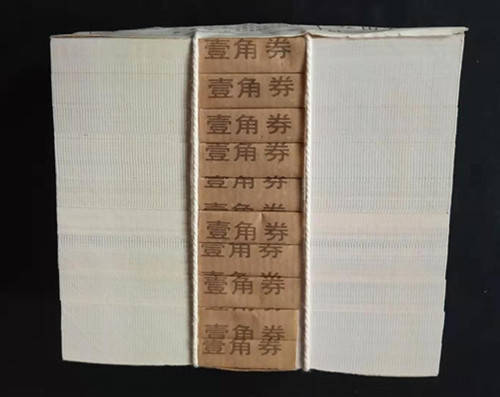 壹角券
壹角券
壹角券
壹角券
壹角券
壹角券
壹角券
壹角券
壹角券
壹角券
壹角券